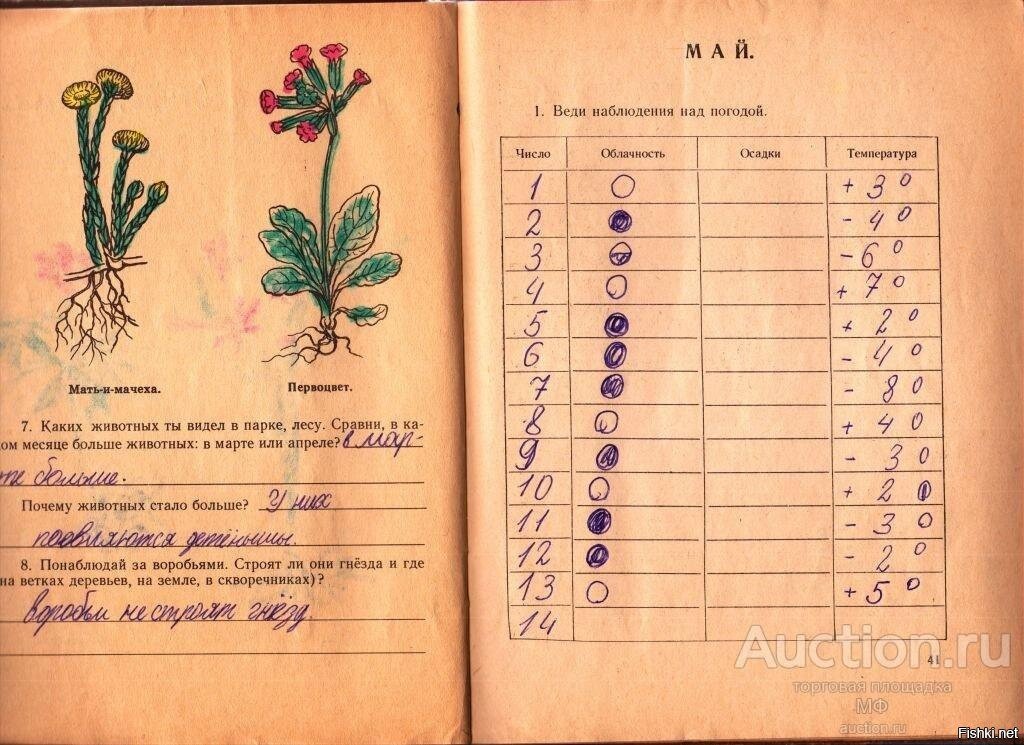 Мать-и-мачеха.
Первоцвет.
7. Каких животных ты видел в парке, лесу. Сравни, в ка-
ом месяце больше животных: в марте или апреле? в мар-
те больше.
Почему животных стало больше? У них
появляются детёныши.
8. Понаблюдай за воробьями. Строят ли они гнёзда и где
на ветках деревьев, на земле, в скворечниках)?
воробьи не строят гнёзд.
МАЙ.
1. Веди наблюдения над погодой.
Число Облачность Осадки Температура
1 + 3 0
2 - 4 0
3 - 6 0
4 + 7 0
5 + 2 0
6 - 4 0
7 - 8 0
8 + 4 0
9 - 3 0
10 + 2 0
11 - 3 0
12 - 2 0
13 + 5 0
14
41
Auction.ru
торговая площадка
МФ
auction.ru
Fishki.net